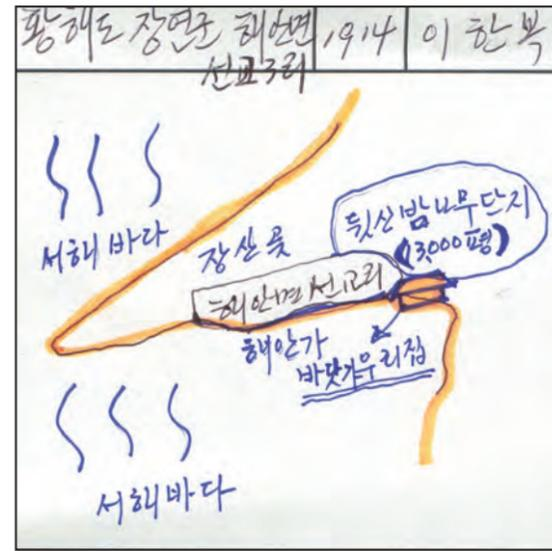 황해도 장연군 해안면 선교리 1914 이한복
서해 바다
장산곶
뒷산 밤나무단지
(3,000평)
해안면 선교리
해안가
바닷가 우리집
서해바다